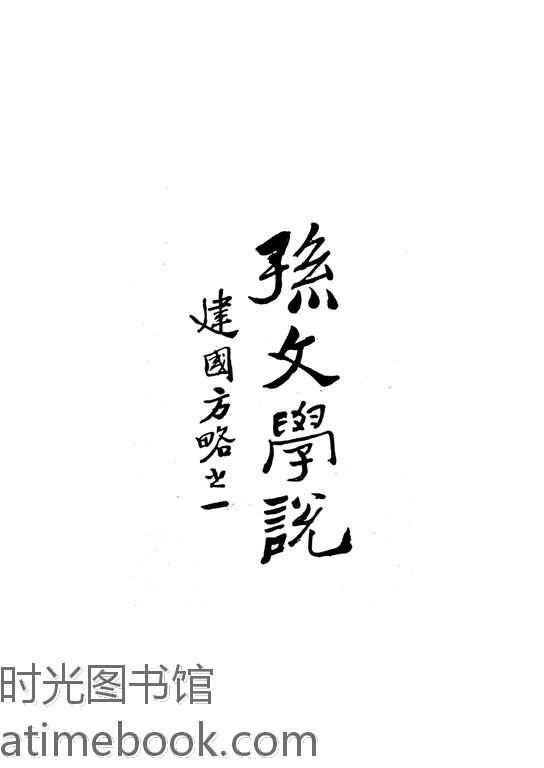 孫文學說
建國方略之一
时光图书馆
atimebook.com